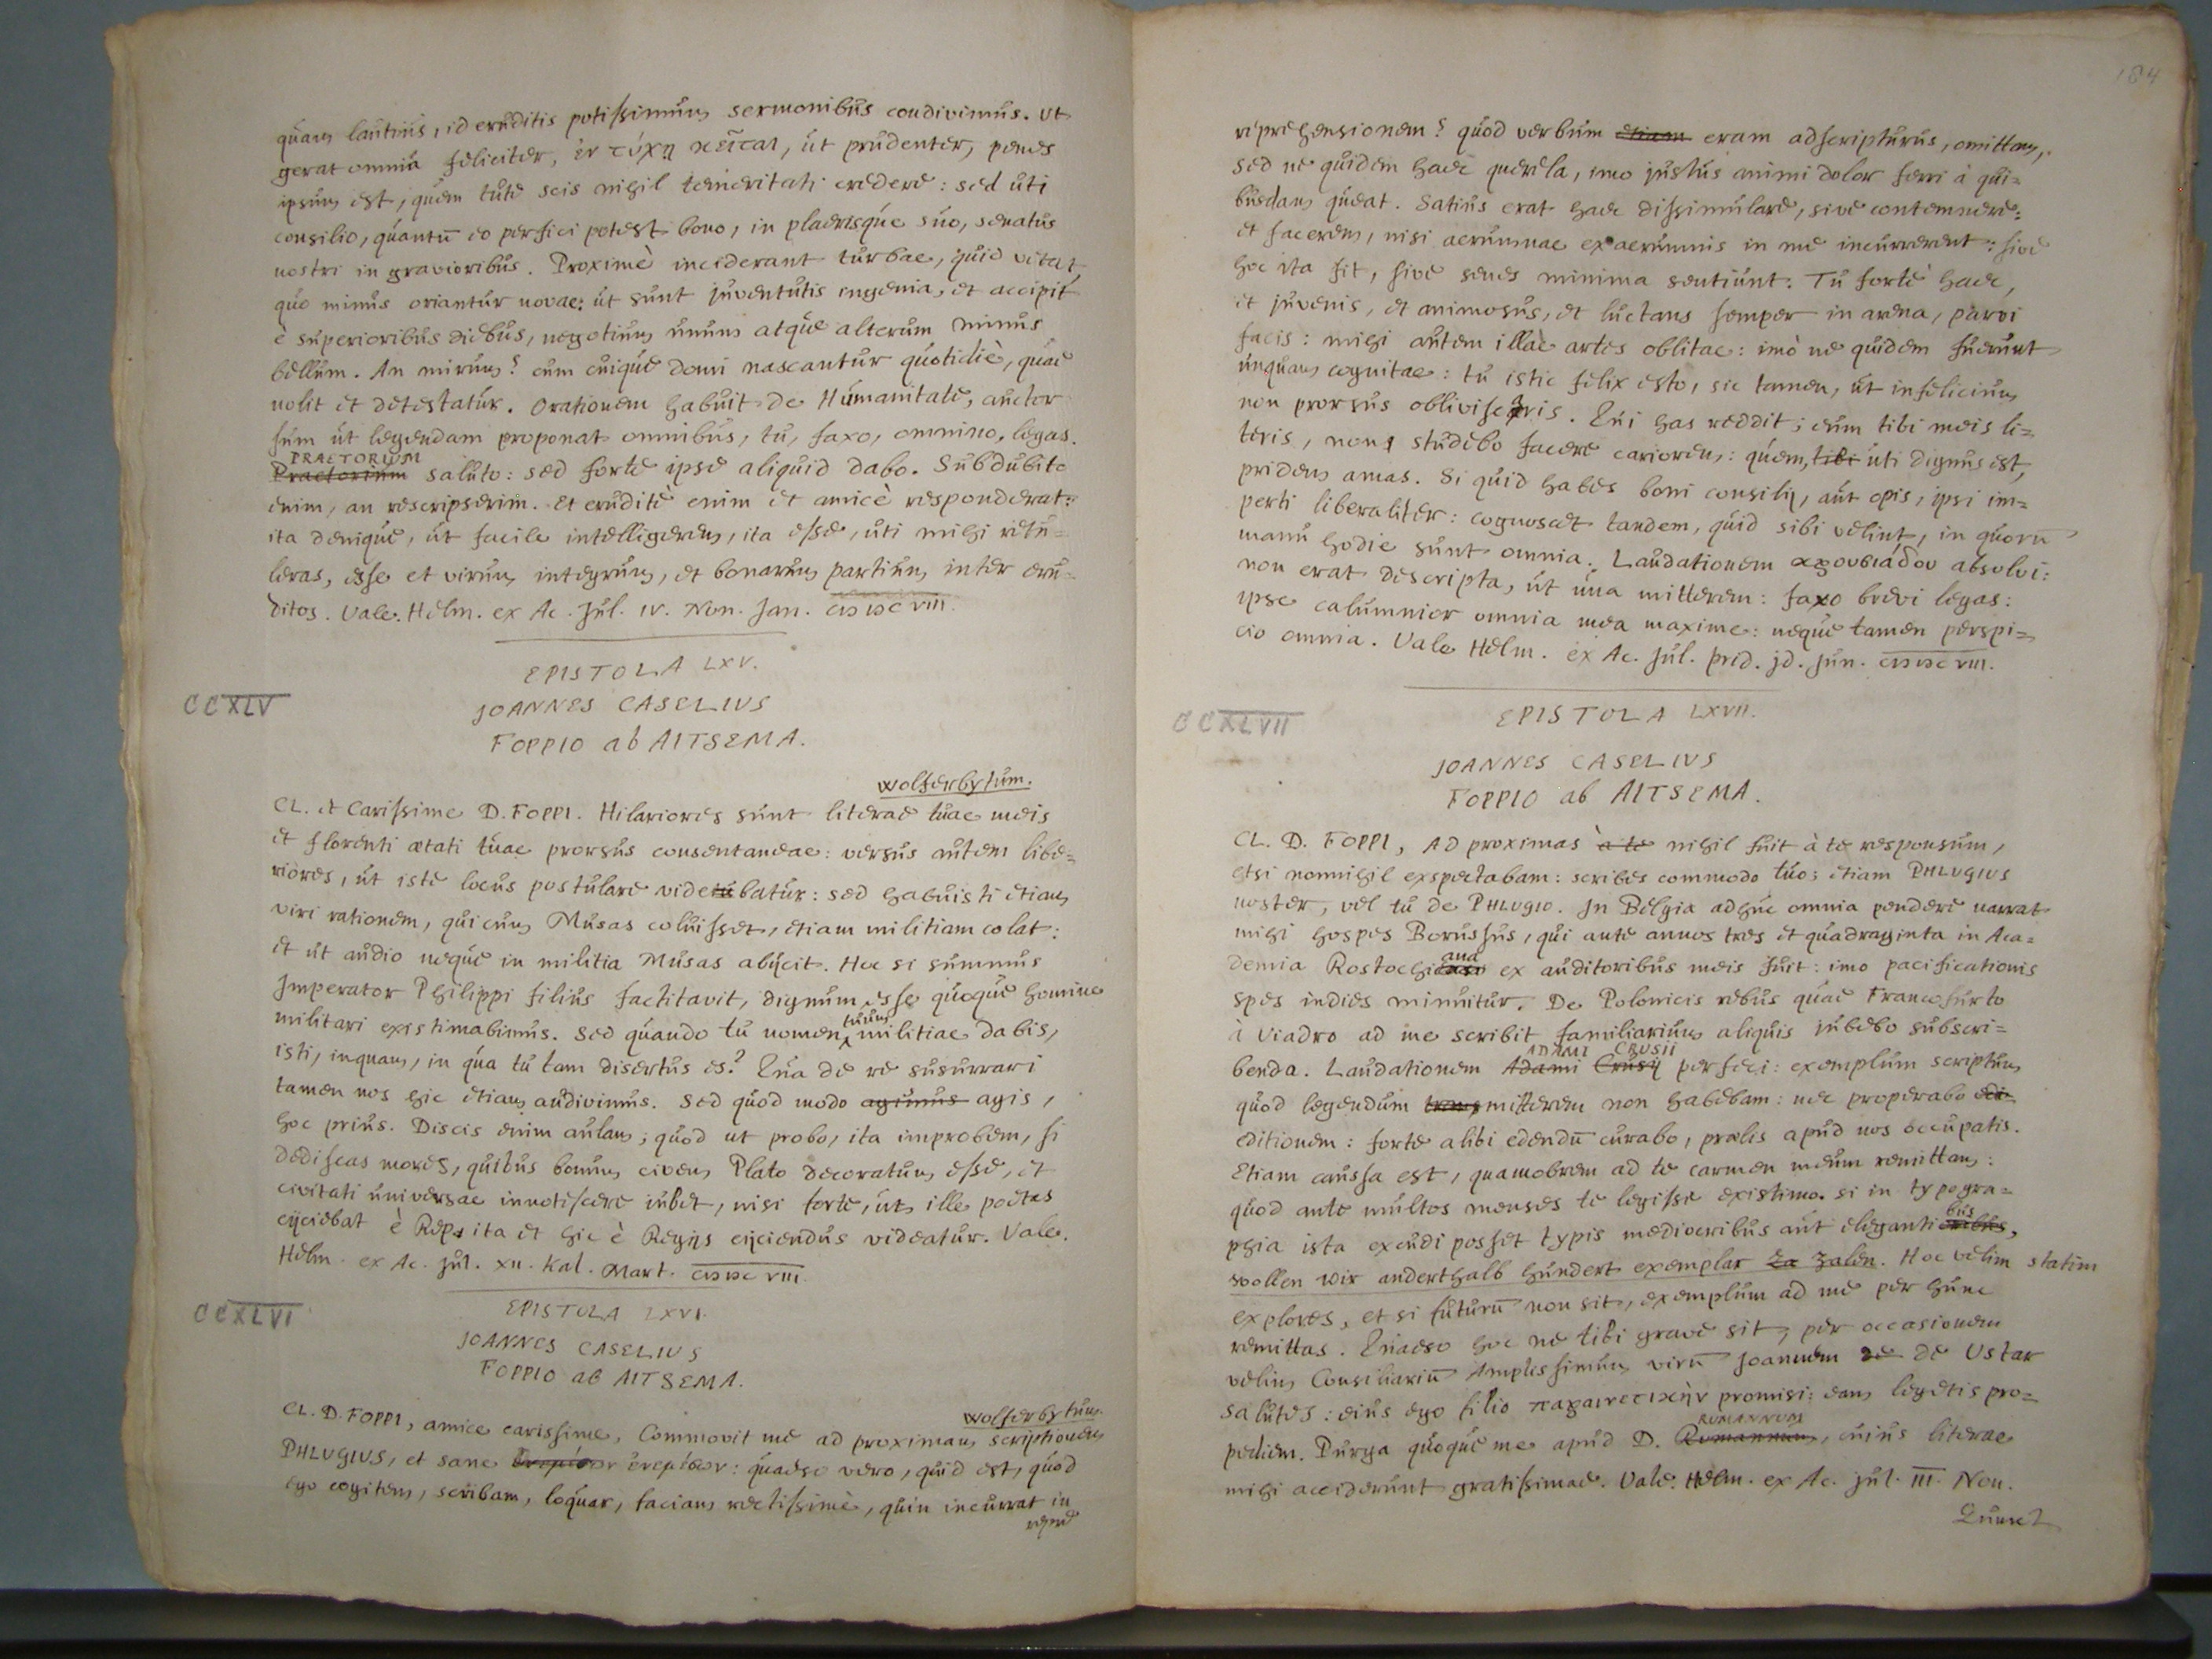 quam lautius, id eruditis potissimum sermonibus condivimus. Ut
gerat omnia feliciter, ἐν τύχῃ κεῖται, ut prudenter, penes
ipsum est, quem tute scis nihil temeritati credere: sed uti
consilio, quantū eo perfici potest bono, in plaerisque suo, senatus
nostri in gravioribus. Proximè inciderant turbae, quid vitat,
quo minus oriantur novae: ut sunt juventutis ingenia, et accipit
è superioribus diebus, negotium unum atque alterum minus
bellum. An mirum? cum cuique domi nascantur quotidiè, quae
nolit et detestatur. Orationem habuit de Humanitate, auctor
sum ut legendam proponat omnibus, tu, faxo, omnino, legas.
PRAETORIUM
Praetorium saluto: sed forte ipse aliquid dabo. Subdubito
enim, an rescripserim. Et eruditè enim et amicè responderat:
ita denique, ut facile intelligerem, ita esse, uti mihi retu=
leras, esse et virum integrum, et bonarum partium, inter eru=
ditos. Vale. Helm. ex Ac. Jul. IV. Non. Jan. CIƆ IƆC VIII.
EPISTOLA LXV.
CCXLV
JOANNES CASELIUS
FOPPIO ab AITSEMA.
Wolferbytum.
CL. et Carissime D. FOPPI. Hilariores sunt literae tuae meis
et florenti ætati tuae prorsus consentaneae: versus autem libe=
riores, ut iste locus postulare videtu batur: sed habuisti etiam
viri rationem, qui cum Musas coluisset, etiam militiam colat:
et ut audio neque in militia Musas abijcit. Hoc si summus
Imperator Philippi filius factitavit, dignum esse quoque homine
militari existimabimus. Sed quando tu nomen tuum militiae dabis,
isti, inquam, in qua tu tam disertus es? Qua de re susurrari
tamen nos hic etiam audivimus. Sed quod modo agimus agis,
hoc prius. Discis enim aulam; quod ut probo, ita improbem, si
dediscas mores, quibus bonum civem Plato decoratum esse, et
civitati universae innotescere iubet, nisi forte, ut ille poetas
eijciebat è Rep. ita et hic è Regijs eijciendus videatur. Vale.
Helm. ex Ac. Jul. XII. Kal. Mart. CIƆ IƆC VIII.
CCXLVI
EPISTOLA LXVI.
JOANNES CASELIUS
FOPPIO ab AITSEMA.
Wolferbytum.
CL. D. FOPPI, amice carissime, Commovit me ad proximam scriptionem
PHLUGIUS, et sane : quaeso vero, quid est, quod
ego cogitem, scribam, loquar, faciam rectissimè, quin incurrat in
repre
184
reprehensionem? quod verbum etiam eram adscripturus, omittam,
sed ne quidem haec querela, imo justus animi dolor ferri à qui=
busdam queat. Satius erat haec dissimulare, sive contemnere:
et facerem, nisi aerumnae ex aerumnis in me incurrerent: sive
hoc ita fit, sive senes minima sentiunt. Tu forte haec,
et juvenis, et animosus, et luctans semper in arena, parvi
facis: mihi autem illae artes oblitae: imò ne quidem fuerunt
unquam cognitae: tu istic felix esto, sic tamen, ut infelicium
non prorsus obliviscaris. Qui has reddit; eum tibi meis li=
teris, non studebo facere cariorem: quem, tibi uti dignus est,
pridem amas. Si quid habes boni consilij, aut opis, ipsi im=
perti liberaliter: cognoscet tandem, quid sibi velint, in quorū
manu hodie sunt omnia. Laudationem absolvi:
non erat descripta, ut una mitterem: faxo brevi legas:
ipse calumnior omnia mea maxime: neque tamen perspi=
cio omnia. Vale Helm. ex Ac. Jul. prid. Jd. Jun. CIƆ IƆC VIII.
CCXLVII
EPISTOLA LXVII.
JOANNES CASELIUS
FOPPIO ab AITSEMA.
CL. D. FOPPI, AD proximas à te nihil fuit à te responsum,
etsi nonnihil exspectabam: scribes commodo tuo; etiam PHLUGIUS
noster, vel tu de PHLUGIO. In Belgia adhuc omnia pendere narrat
mihi hospes Borussus, qui ante annos tres et quadraginta in Aca=
demia Rostochiana ex auditoribus meis fuit: imo pacificationis
spes indies minuitur. De Polonicis rebus quae Francofurto
à Viadro ad me scribit familiarium aliquis iubebo subscri=
ADAMI CRUSII
benda. Laudationem Adami Crusij perfeci: exemplum scriptum
quod legendum mitterem non habebam: nec properabo edi=
editionem: forte alibi edendū curabo, prælis apud nos occupatis.
Etiam caussa est, quamobrem ad te carmen meum remittam:
quod ante multos menses te legisse existimo. si in typogra=
phia ista excudi posset typis mediocribus aut elegantibus,
wollen wir anderthalb hundert exemplar za zalen. Hoc velim statim
explores, et si futurū non sit, exemplum ad me per hunc
remittas. Quaeso hoc ne tibi grave sit, per occasionem
velim Consiliariū Amplissimum virū Joannem de de Ustar
salutes: eius ego filio παραινετικὴν promisi: eam legetis pro=
RUMANNUM
pediem. Purga quoque me apud D. Rumannum, cuius literae
mihi acciderunt gratissimae. Vale. Helm. ex Ac. Jul. III. Non.